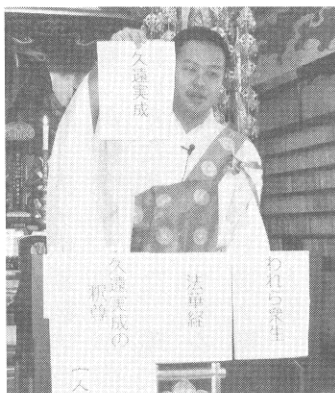 久遠実成
われら衆生
法華経
久遠実成の
釈尊